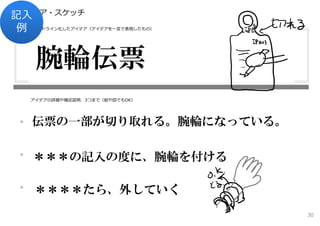 記入
例
ア・スケッチ
ドライン化したアイデア（アイデアを一言で表現したもの）
切れる
iPad
腕輪伝票
アイデアの詳細や補足説明 3つまで（絵や図でもOK）
• 伝票の一部が切り取れる。腕輪になっている。
• ＊＊＊の記入の度に、腕輪を付ける
• ＊＊＊＊たら、外していく
30